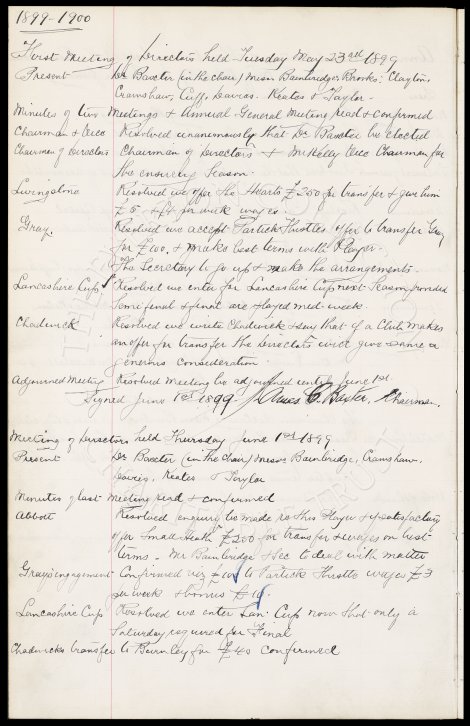 1899-1900
First Meeting of Directors held Tuesday May 23rd 1899
Present Dr Baxter (in the chair) Messrs Bainbridge, Brooks, Clayton,
Crawshaw, Cuff, Davies, Keates & Taylor.
Minutes of two Meetings & Annual General Meeting read & confirmed
Chairman & Vice Resolved unanimously that Dr Baxter be elected
Chairman of Directors Chairman of Directors & Mr Kelly Vice Chairman for
the ensuing Season.
Livingstone Resolved we offer the Hearts £250 for transfer & give him
£5 & £4 per week wages.
Gray. Resolved we accept Partick Thistles offer to transfer Gray
for £100, & make best terms with Player.
The Secretary to go up & make the arrangements.
Lancashire Cup Resolved we enter for Lancashire Cup next Season provided
Semi final & final are played mid-week
Chadwick Resolved we write Chadwick & say that if a Club makes
an offer for transfer the Directors will give same a
generous consideration
Adjourned Meeting Resolved Meeting be adjourned until June 1st.
Signed June 1st 1899 James C. Baxter, Chairman.
Meeting of Directors held Thursday June 1st 1899
Present Dr Baxter (in the chair) Messrs Bainbridge, Crawshaw,
Davies, Keates & Taylor
Minutes of last Meeting read & confirmed
Abbott Resolved enquiry be made re this Player & if satisfactory
offer Small Heath £200 for transfer & wages on best
terms. Mr Bainbridge & Sec to deal with matter
Grays engagement Confirmed viz £100 to Partick Thistle wages £3
per week & bonus £10.
Lancashire Cup Resolved we enter Lan: Cup now that only a
Saturday required for Final
Chadwicks transfer to Burnley for £40 confirmed